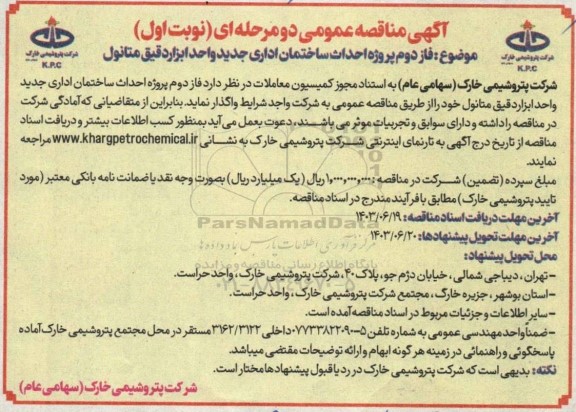 آگهی مناقصه عمومی دو مرحله ای (نوبت اول)
موضوع : فاز دوم پروژه احداث ساختمان اداری جدید واحد ابزار دقیق متانول
شرکت پتروشیمی خارک
K.P.C
شرکت پتروشیمی خارک
K.P.C
شرکت پتروشیمی خارک (سهامی عام) به استناد مجوز کمیسیون معاملات در نظر دارد فاز دوم پروژه احداث ساختمان اداری جدید
واحد ابزار دقیق متانول خود را از طریق مناقصه عمومی به شرکت واجد شرایط واگذار نماید. بنابراین از متقاضیانی که آمادگی شرکت
در مناقصه را داشته و دارای سوابق و تجربیات موثر می باشند، دعوت بعمل می آید بمنظور کسب اطلاعات بیشتر و دریافت اسناد
مناقصه از تاریخ درج آگهی به تارنمای اینترنتی شرکت پتروشیمی خارک به نشانی www.khargpetrochemical.ir مراجعه
نمایند.
مبلغ سپرده (تضمین) شرکت در مناقصه : ۱,۰۰۰,۰۰۰,۰۰۰ ریال (یک میلیارد ریال) بصورت وجه نقد یا ضمانت نامه بانکی معتبر (مورد
تایید پتروشیمی خارک) مطابق با فرآیند مندرج در اسناد مناقصه.
آخرین مهلت دریافت اسناد مناقصه : ۱۴۰۳/۰۶/۱۹
آخرین مهلت تحویل پیشنهادها : ۱۴۰۳/۰۶/۲۰
محل تحویل پیشنهاد :
– تهران ، دیباجی شمالی ، خیابان دژم جو، پلاک ۴۰ ، شرکت پتروشیمی خارک ، واحد حراست.
– استان بوشهر ، جزیره خارک ، مجتمع شرکت پتروشیمی خارک ، واحد حراست.
– سایر اطلاعات و جزئیات مربوط در اسناد مناقصه آمده است.
– ضمناً واحد مهندسی عمومی به شماره تلفن ۵-۰۷۷۳۳۸۲۲۰۹۰ داخلی ۳۱۶۲/۳۱۲۲ مستقر در محل مجتمع پتروشیمی خارک آماده
پاسخگوئی و راهنمائی در زمینه هر گونه ابهام و ارائه توضیحات مقتضی میباشد.
نکته : بدیهی است که شرکت پتروشیمی خارک در رد یا قبول پیشنهادها مختار است.
شرکت پتروشیمی خارک (سهامی عام)
ParsNamadData
پایگاه اطلاع رسانی مناقصه و مزایده